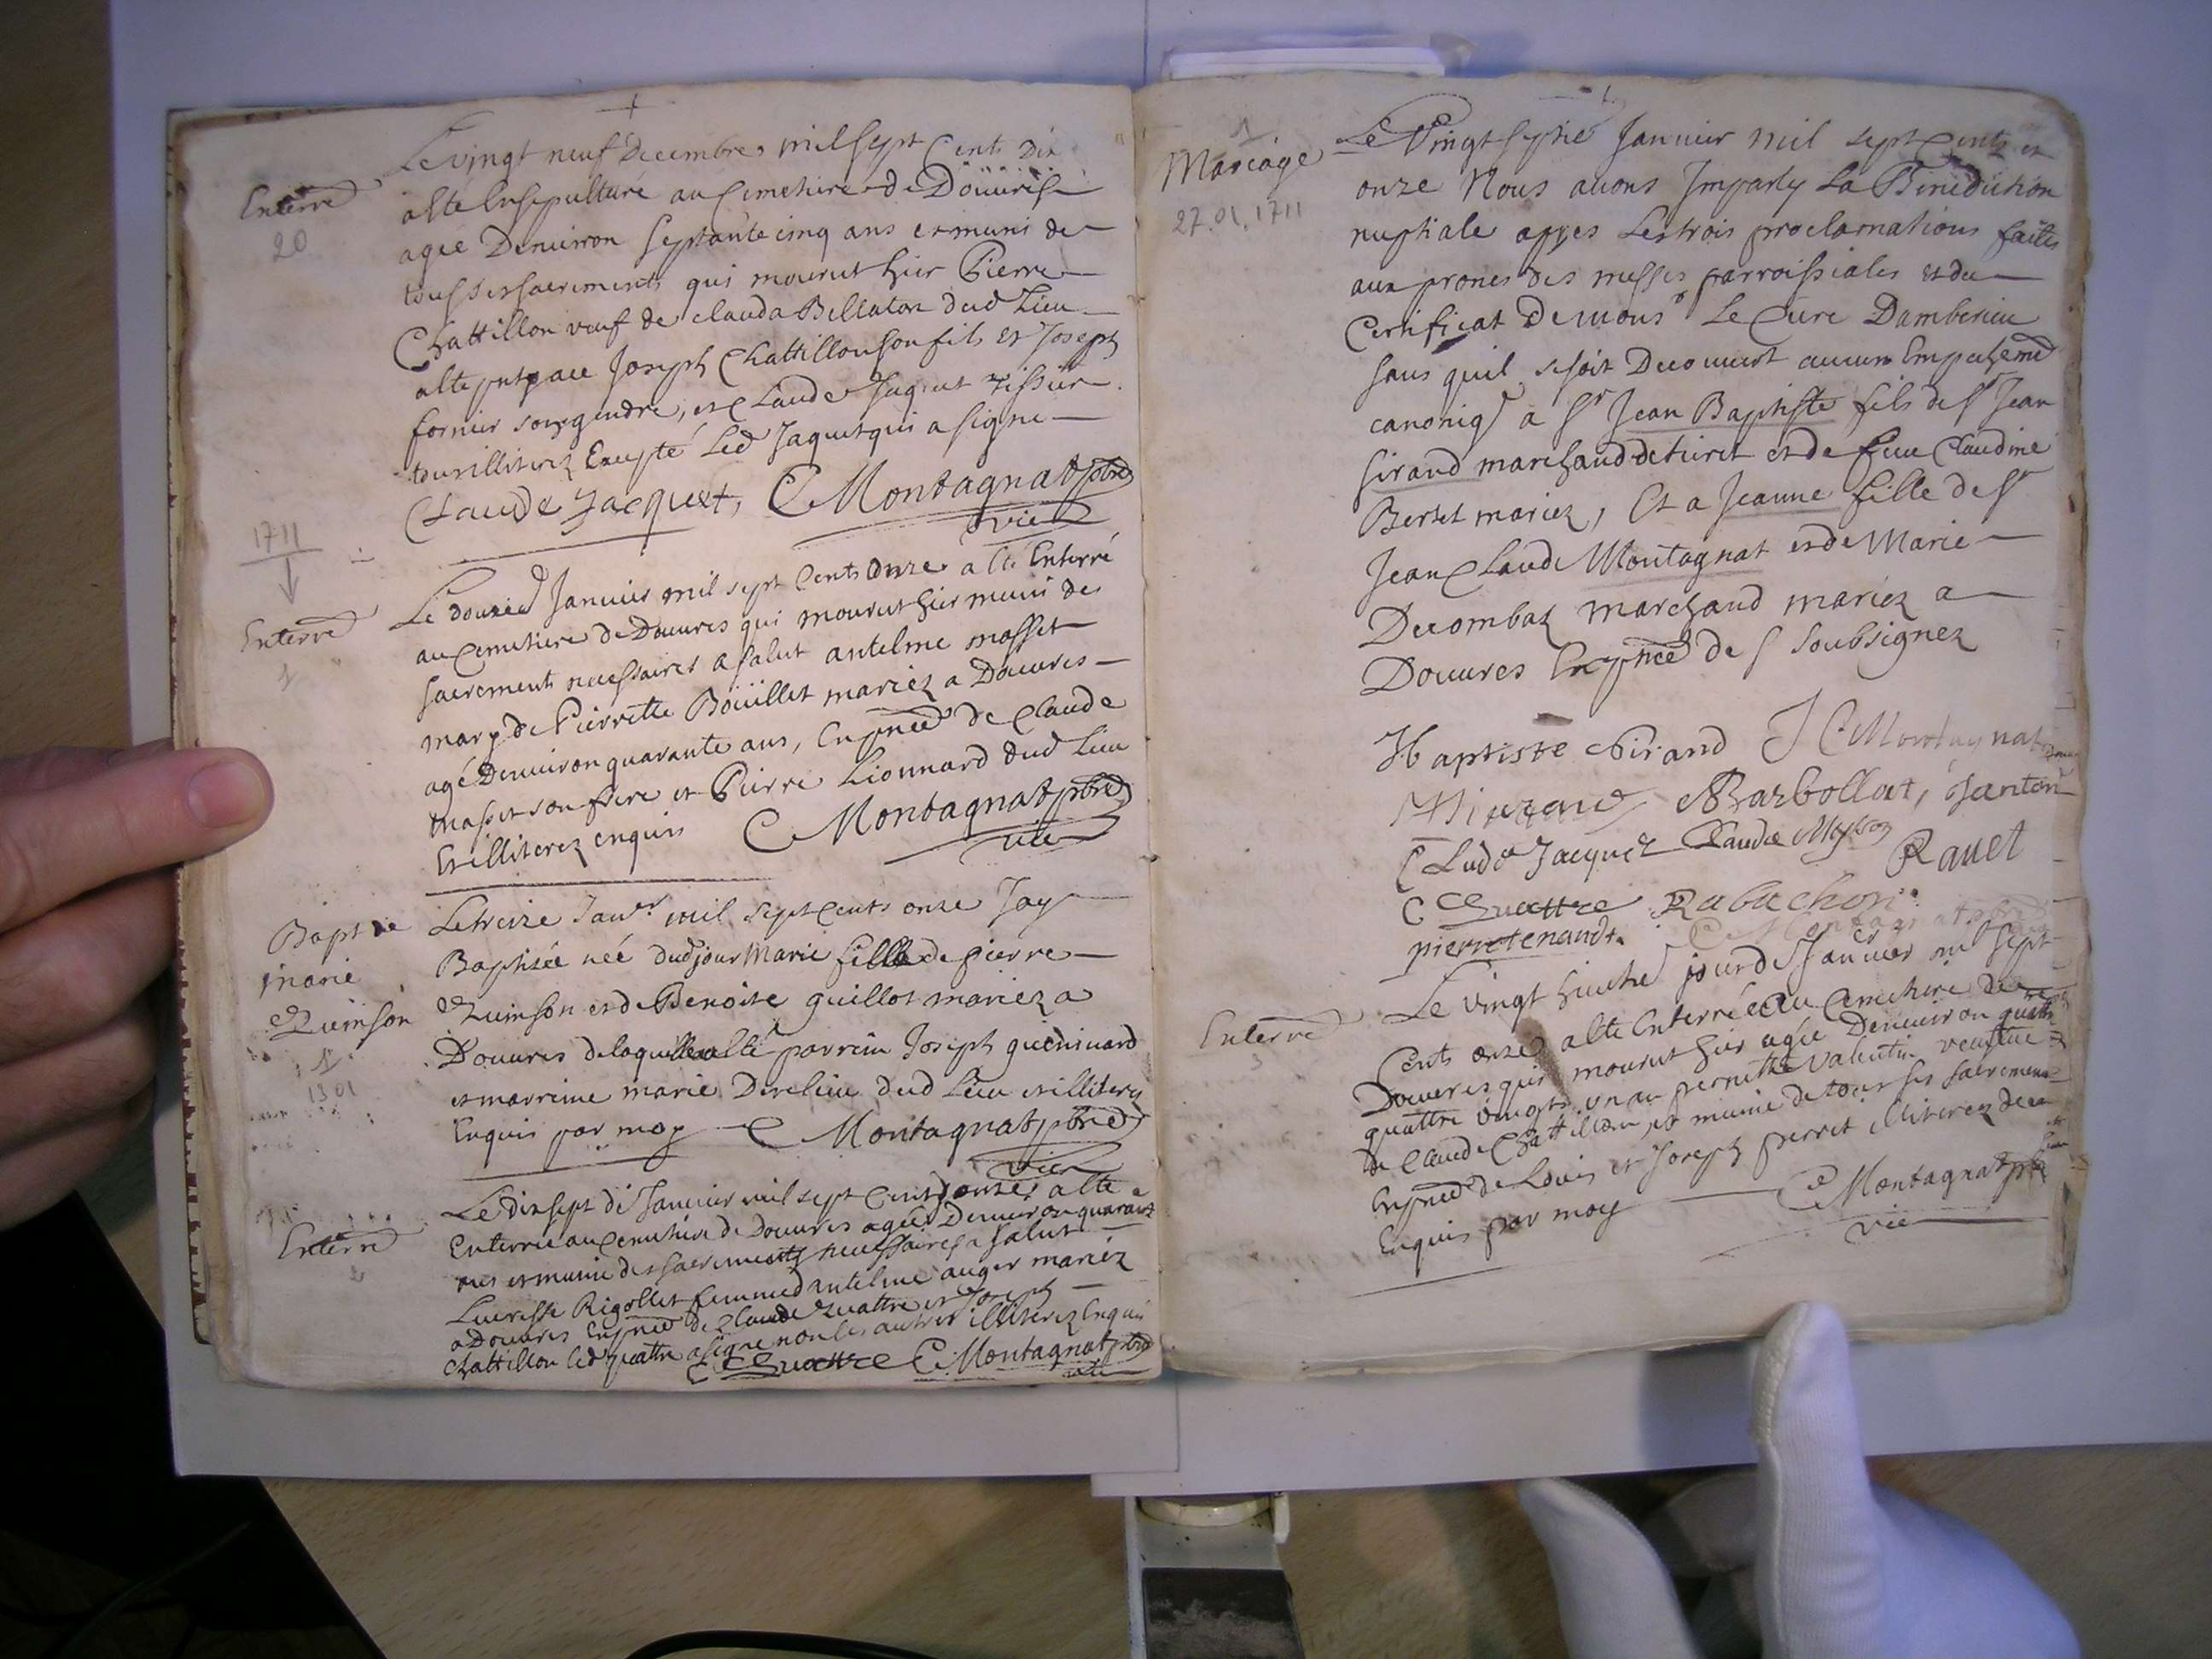 Le vingt neuf Decembre mil sept Cents Dix
Enterré
20
a esté Ensepulturé au Cemetiere de Doüures
agée Denuiron septante cinq ans et muni de
tous ses sacrements qui mourut hier Pierre
Chattillon veuf de Clauda Bellaton dud Lieu
a esté Joseph Chattillon son fils et Joseph
fornier son gendre, et Claude Jaquet tissier
tous illiterez Excepté Led Jaquet qui a signe
Claude Jacquet, C Montagnat ptre
vic
1711
Enterré
1
Le douzie Januier mil sept Cents Onze a esté Enterré
au Cemetiere de Douures qui mourut hier muni des
sacrements necessaires a salut antelme masset
mary de Pierrette Boüillet mariez a Douures
agé Denuiron quarante ans, En pnce de Claude
masset son frere et Pierre Lionnard dud Lieu
et illiterez enquis C Montagnat ptre
vic
Bapt
marie
Quinson
1
1301
Le treize Janer mil sept cents onze Jay
Baptisée née dud jour Marie fille de pierre
Quinson et de Benoite guillot mariez a
Douures de laquelle a esté parrein Joseph
et marreine marie dud Lieu et illiterez
Enquis par moy C Montagnat ptre
vic
Enterré
2
Le dix sept de Januier mil sept Cents onze a esté
Enterrée au Cemetiere de Douures agée Denuiron quarante
ans et munie des sacrements necessaires a salut
Lucresse Rigollet femme d antelme auger mariez
a Douures En pnce de Claude Quattre et Joseph
Chattillon led Quattre a signe non les autres illiterez Enquis
C Quattre C Montagnat ptre
vic
1
Mariage
27.01.1711
Le Vingt septie Januier mil sept Cents et
onze Nous auons Imparty La Benediction
nuptiale apres Les trois proclamations faites
aux prones des messes parroissiales et du
Certificat De mons Le Curé Damberieu
sans quil se soit Decouuert aucun Empechemt
canoniq a Sr Jean Baptiste fils de Sr Jean
Girand marchand de et de feue Claudine
Bertet mariez, Et a Jeanne fille de Sr
Jean Claude Montagnat et de Marie
Decombaz marchand mariez a
Douures En pnce de S Soubsignez
JBaptiste Girand J C Montagnat
Barbollat, Janton
Claude Jacquet Claude
Rauet
C Quattre Rabuchon
pierre tenand. C Montagnat ptre
Enterré
3
Le vingt huictie jour de Januier mil sept
Cents onze a esté Enterrée au Cemetiere de
Douures qui mourut hier agée Denuiron
quattre vingts un an pernette Valentin veufue
de Claude Chattillon, et munie de tous ses sacrements
En pnce de Louis et Joseph perret illiterez
Enquis par moy C Montagnat ptre
vic